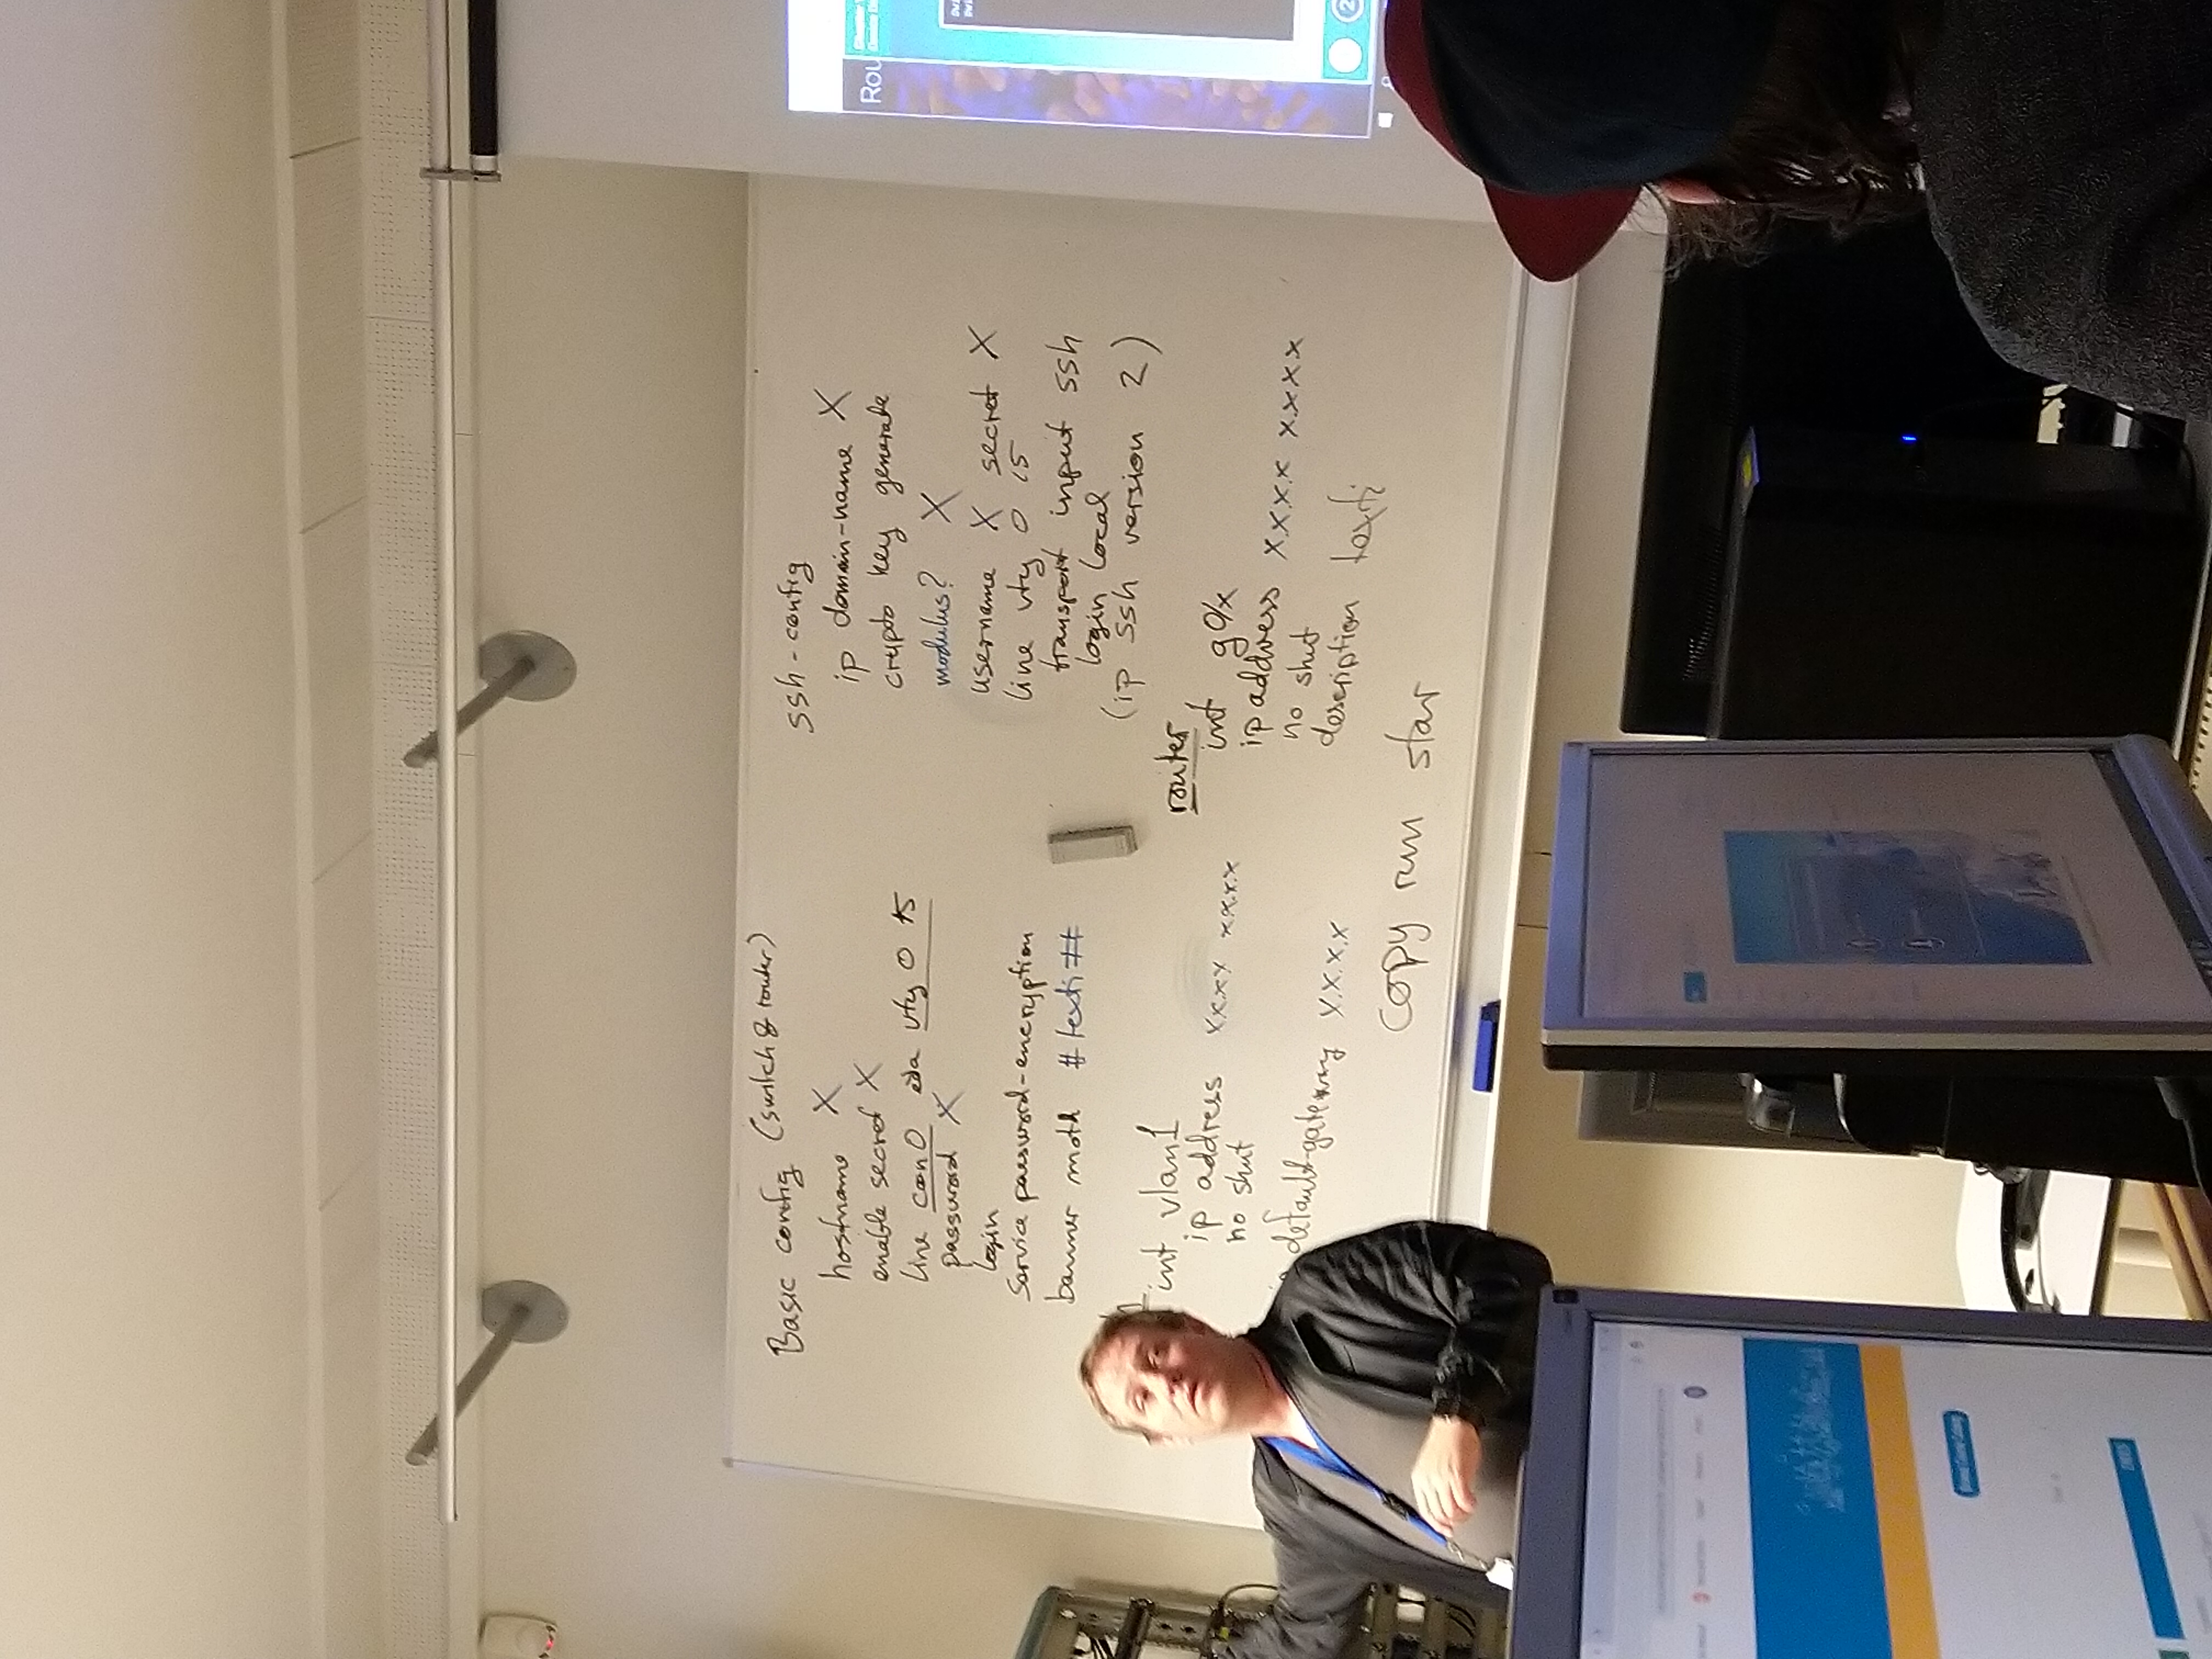 Basic config (switch & router)
hostname X
enable secret X
line con 0 eða vty 0 15
password X
login
service password-encryption
banner motd # texti ##
h
int vlan1
ip address x.x.x.x x.x.x.x
no shut
default-gateway x.x.x.x
ssh-config
ip domain-name X
crypto key generate
modulus? X
username X secret X
line vty 0 15
transport input ssh
login local
(ip ssh version 2)
router
int g0/x
ip address x.x.x.x x.x.x.x
no shut
description texti
copy run star
Rou
2